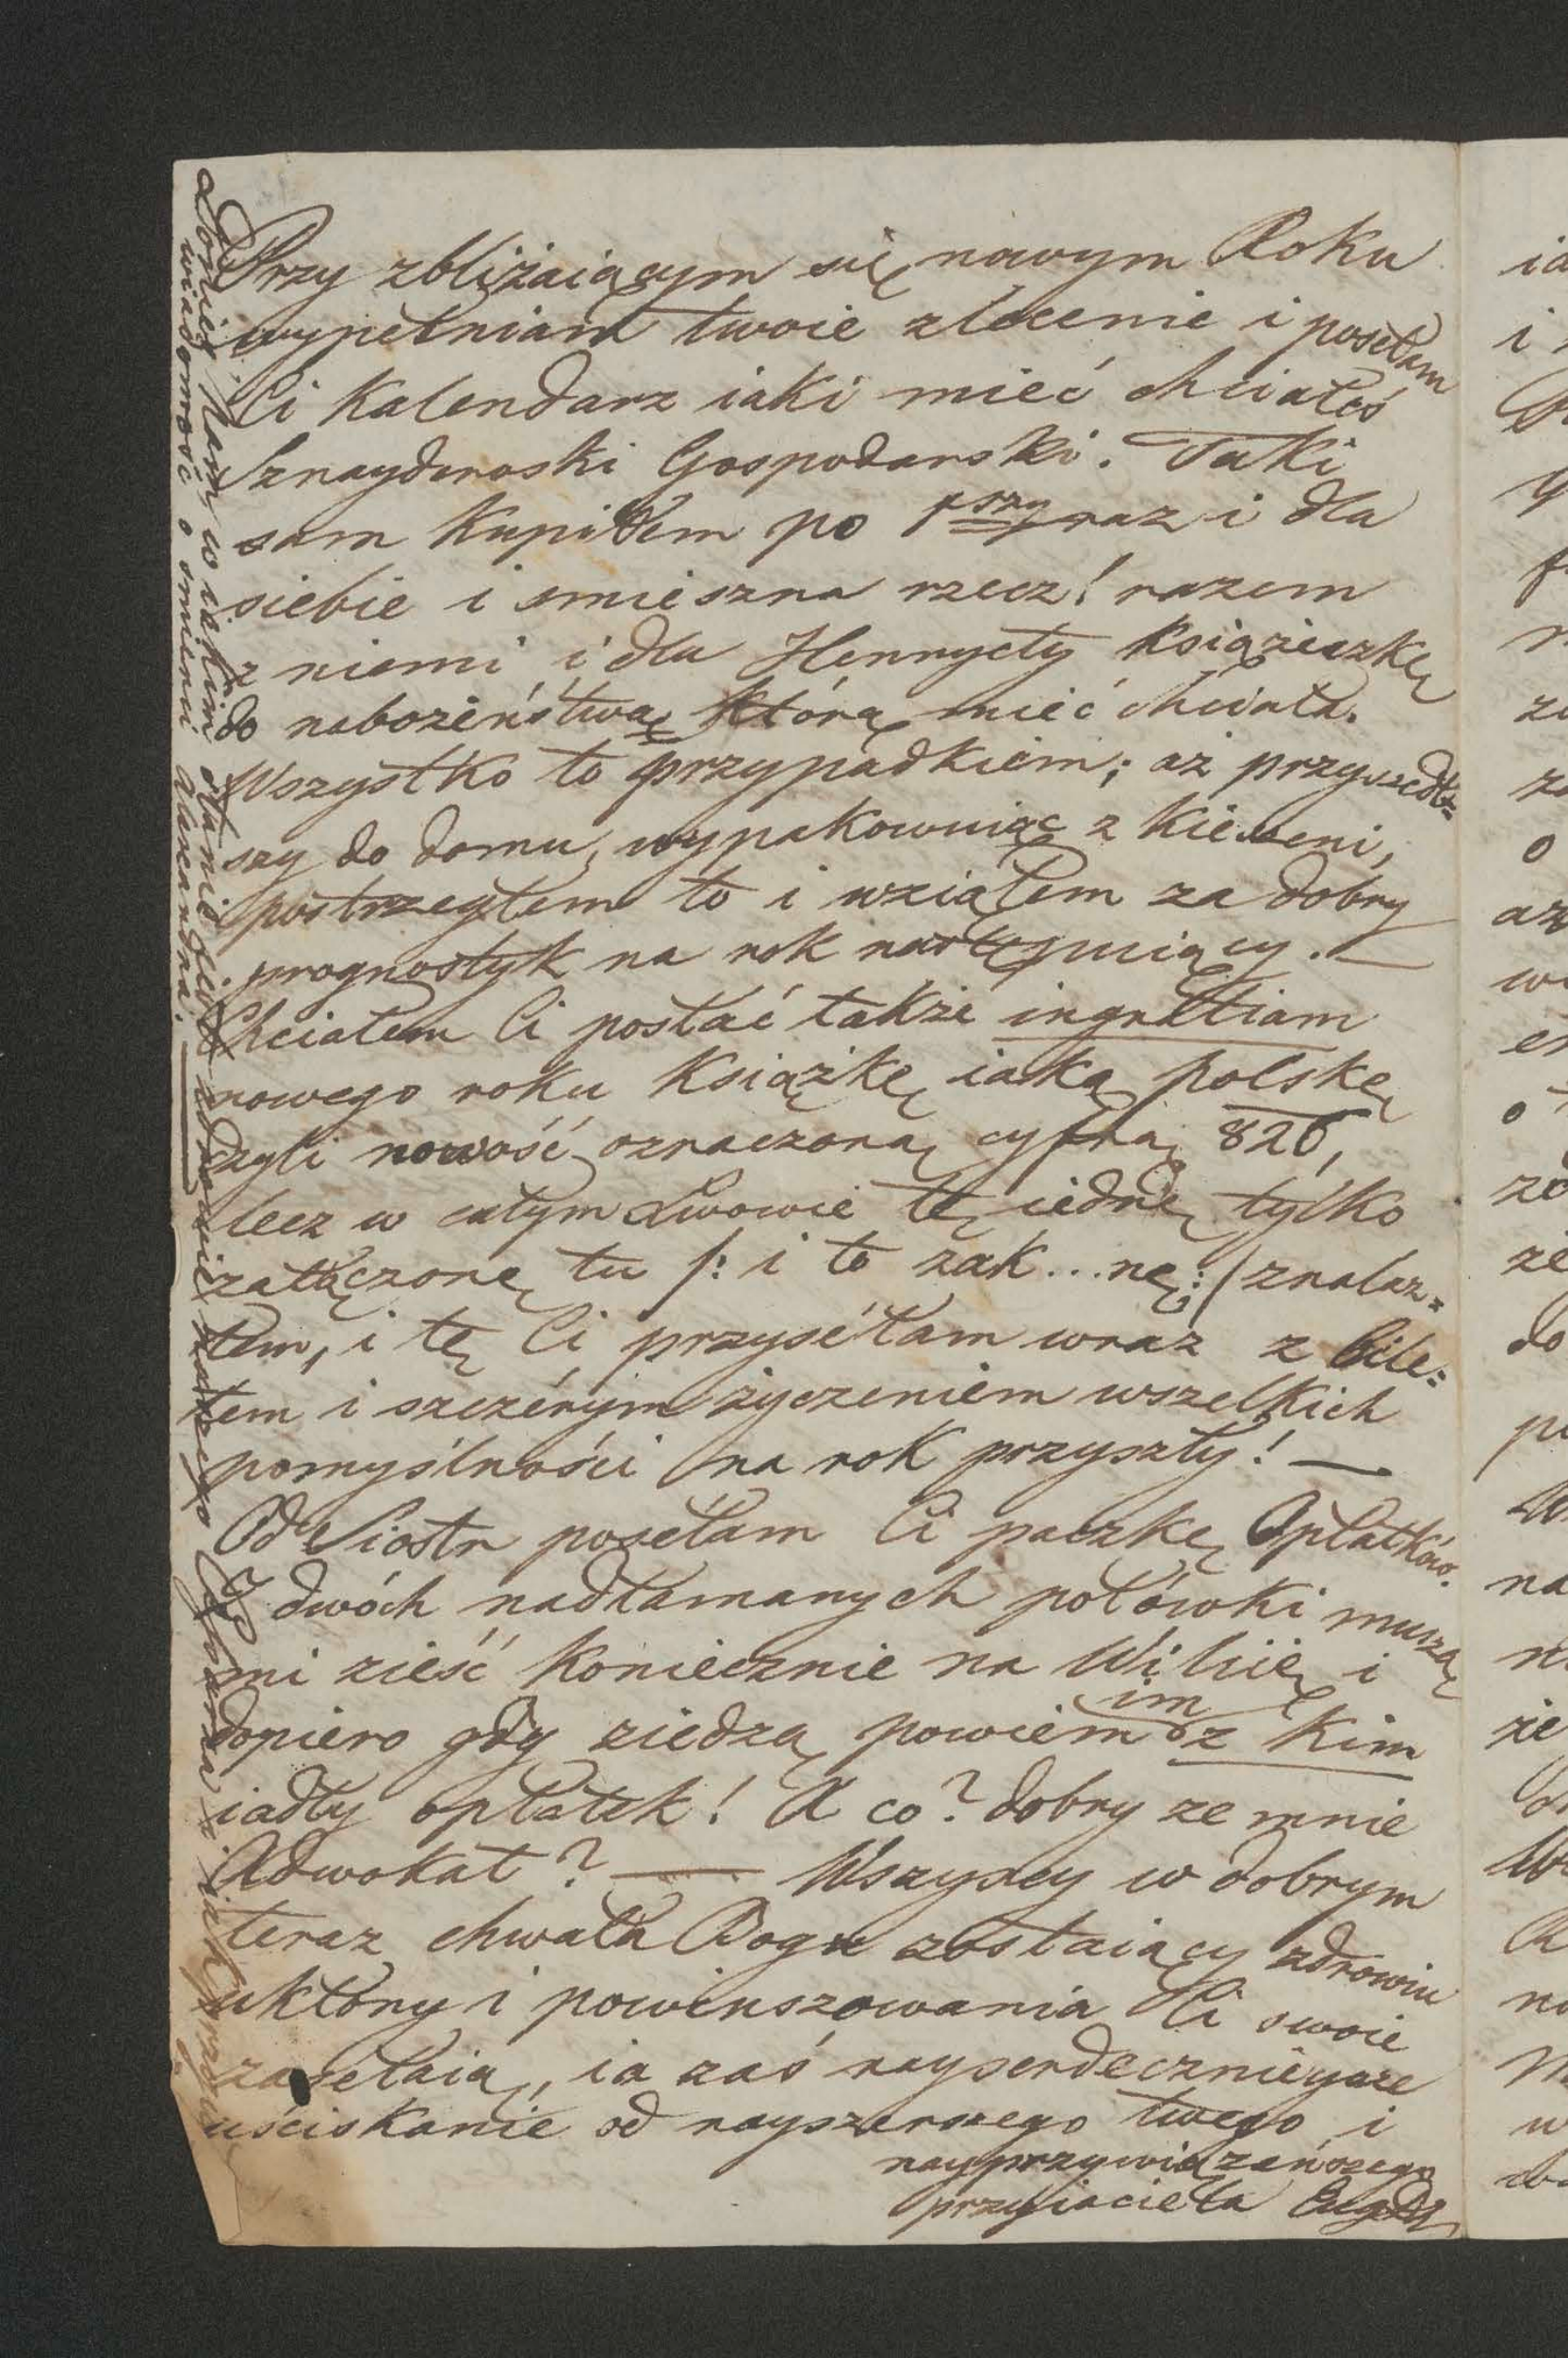 Przy zbliżaiącym się nowym Roku
wypełniam twoie zlecenie i posełam
Ci Kalendarz iaki mieć chciałeś
Sznayderoski Gospodarski. Taki
sam Kupiłem po 1szy raz i dla
siebie i smieszna rzecz! razem
z niemi i dla Henryety Książeczkę
do nabożeństwa, którą mieć chciała.
Wszystko to przypadkiem; aż przyszedł-
szy do domu, wypakowuiąc z Kieszeni,
postrzegłem to i wziąłem za dobry
prognostyk na rok następuiący. —
Chciałem Ci posłać także ingratiam
nowego roku Książkę iaką polskę
czyli nowość oznaczoną cyfrą 826,
lecz w całym Lwowie tę iednę tylko
załączonę tu /: i to zak...nę :/ znalaz=
łem, i tę Ci przysełam wraz z bile=
tem i szczérym życzeniem wszelkich
pomyślności na rok przyszły! —
Od Siostr posełam Ci paczkę Opłatków.
Z dwóch nadłamanych połówki muszą
mi zieść Koniecznie na Wiliię i
dopiero gdy ziedzą powiem im z Kim
iadły opłatek! A co? dobry ze mnie
Adwokat? — Wszyscy w dobrym
teraz chwała Bogu zostaiący zdrowiu
ukłony i powinszowania Ci swoie
zasełaią, ia zaś nayserdecznieysze
uściskanie od nayszczerszego twego i
nayprzywiązańszego
przyiaciela
Donieś Nam w iakim stanie iest zdrowie i iak
wiadomość o śmierci Alexandra.
ia
i
az
do
na